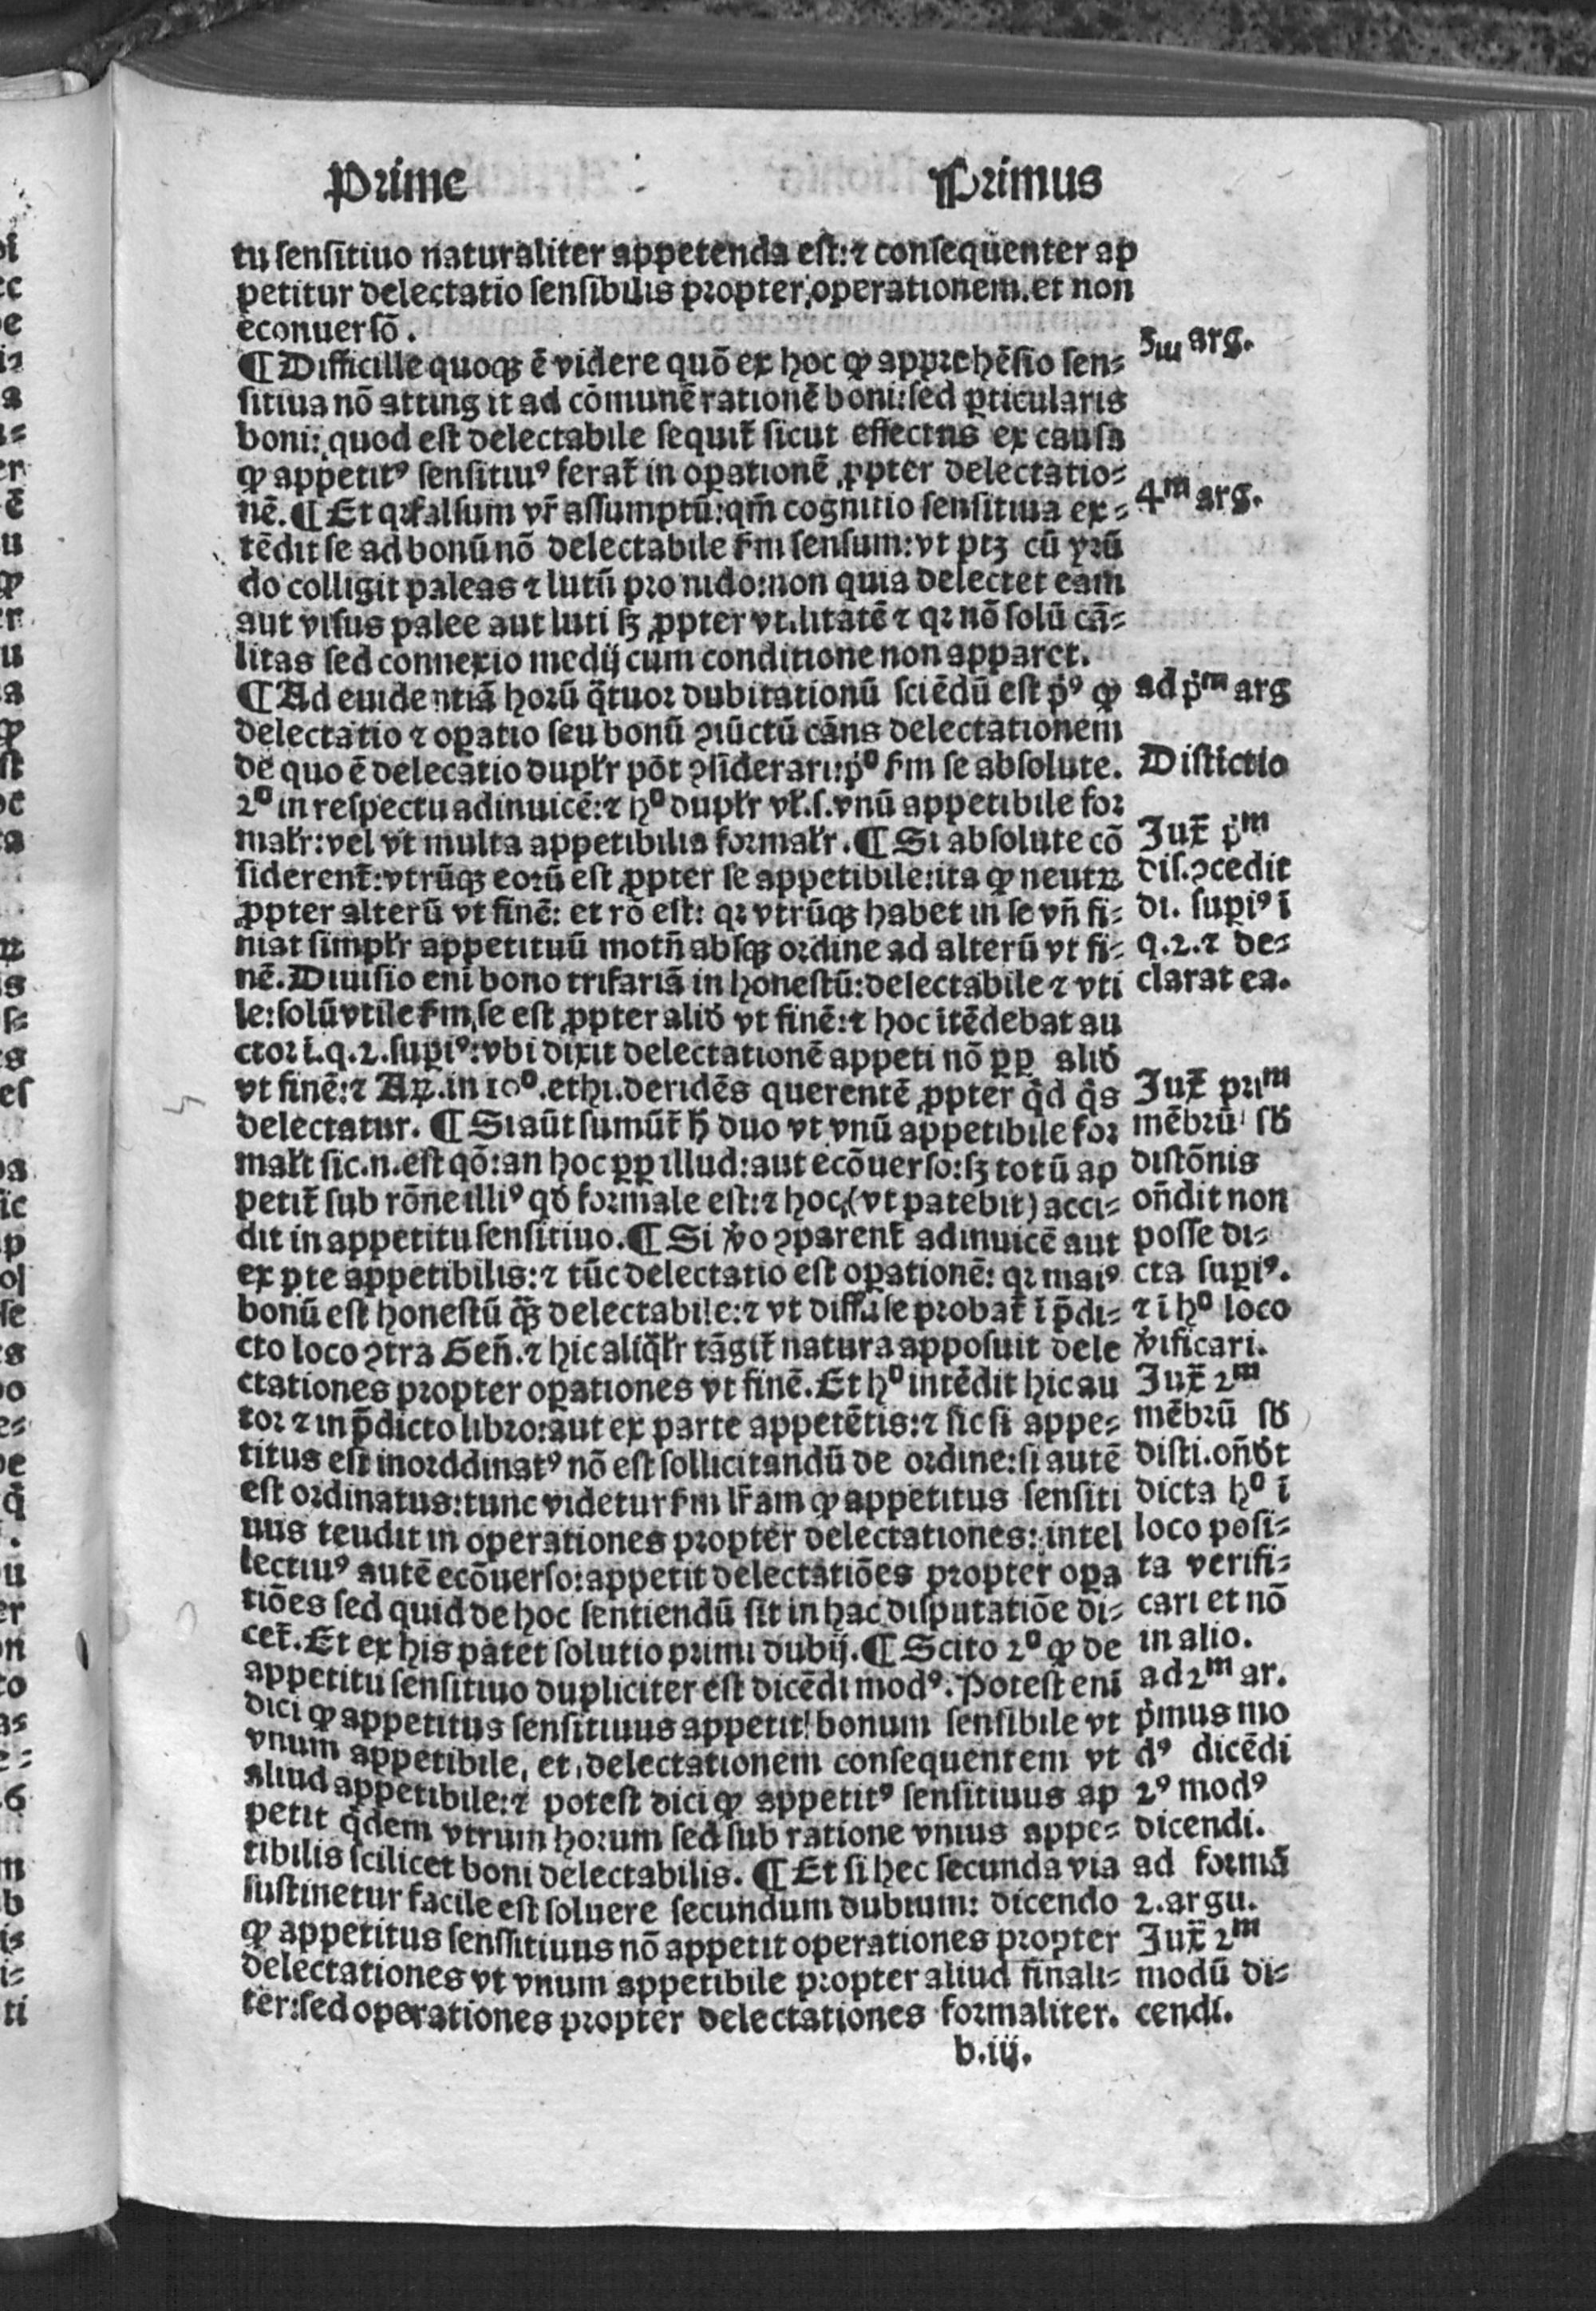 Prime Primus
tu ſenſitiuo naturaliter appetenda eſt: ⁊ conſequenter ap
petitur delectatio ſenſibilis propter operationem. et non
econuerſõ.
¶ Difficille quoqꝫ ẽ videre quõ ex hoc ꝙ apprehẽſio ſen⸗
ſitiua nõ atting it ad cõmunẽ rationẽ boni: ſed ꝑticularis
boni: quod eſt delectabile ſequit̃ ſicut effectus ex cauſa
ꝙ appetitꝰ ſenſitiuꝰ ferat̃ in oꝑationẽ ꝓpter delectatio⸗
nẽ. ¶ Et qꝛ falſum vr̃ aſſumptũ: qm̃ cognitio ſenſitiua ex⸗
tẽdit ſe ad bonũ nõ delectabile ẜm ſenſum: vt ptꝫ cũ yrũ
do colligit paleas ⁊ lutũ pro nido: non quia delectet eam
aut viſus palee aut luti ſꝫ ꝓpter vtilitatẽ ⁊ qꝛ nõ ſolũ cã⸗
litas ſed connexio medij cum conditione non apparet.
¶ Ad euidentiã horũ q̃tuor dubitationũ ſciẽdũ eſt pͥꝰ ꝙ
delectatio ⁊ oꝑatio ſeu bonũ ꝯiũctũ cãns delectationem
de quo ẽ delecatio duplr̃ põt ꝯſiderari: pͥº ẜm ſe abſolute.
2º in reſpectu adinuicẽ: ⁊ hº duplr̃ vł. ſ. vnũ appetibile for
malr̃: vel vt multa appetibilia formalr̃. ¶ Si abſolute cõ
ſiderent̃: vtrũqꝫ eorũ eſt ꝓpter ſe appetibile: ita ꝙ neutꝝ
ꝓpter alterũ vt finẽ: et rõ eſt: qꝛ vtrũqꝫ habet in ſe vñ fi⸗
niat ſimplr̃ appetituũ motũ abſqꝫ ordine ad alterũ vt fi⸗
nẽ. Diuiſio eni bono trifariã in honeſtũ: delectabile ⁊ vti
le: ſolũ vtile ẜm ſe eſt ꝓpter aliđ vt finẽ: ⁊ hoc ĩtẽdebat au
ctor ĩ. q. 2. ſupiꝰ: vbi dixit delectationẽ appeti nõ ꝓꝑ aliđ
vt finẽ: ⁊ Aꝝ. in 10º. ethi. deridẽs querentẽ ꝓpter q̃d q̃s
delectatur. ¶ Si aũt ſumũt̃ h̃ duo vt vnũ appetibile for
malr̃ ſic. n. eſt qõ: an hoc ꝓꝑ illud: aut ecõuerſo: ſꝫ totũ ap
petit̃ ſub rõne illiꝰ qđ formale eſt: ⁊ hoc (vt patebit) acci⸗
dit in appetitu ſenſitiuo. ¶ Si ꝟo ꝯparent̃ adinuicẽ aut
ex ꝑte appetibilis: ⁊ tũc delectatio eſt oꝑationẽ: qꝛ maiꝰ
bonũ eſt honeſtũ q̃ꝫ delectabile: ⁊ vt diffuſe probat̃ ĩ p̃di⸗
cto loco ꝯtra Gen̄. ⁊ hic aliq̃lr̃ tãgit̃ natura appoſuit dele
ctationes propter oꝑationes vt finẽ. Et hº intẽdit hic au
tor ⁊ in p̃dicto libro: aut ex parte appetẽtis: ⁊ ſic ſi appe⸗
titus eſt inorddinatꝰ nõ eſt ſollicitandũ de ordine: ſi autẽ
eſt ordinatus: tunc videtur ẜm lr̃am ꝙ appetitus ſenſiti
uus tendit in operationes propter delectationes: intel
lectiuꝰ autẽ ecõuerſo: appetit delectatiões propter oꝑa
tiões ſed quid de hoc ſentiendũ ſit in hac diſputatiõe di⸗
cet̃. Et ex his patet ſolutio primi dubij. ¶ Scito 2º ꝙ de
appetitu ſenſitiuo dupliciter eſt dicẽdi modꝰ. Poteſt enĩ
dici ꝙ appetitus ſenſitiuus appetit bonum ſenſibile vt
vnum appetibile, et delectationem conſequentem vt
aliud appetibile: ⁊ poteſt dici ꝙ appetitꝰ ſenſitiuus ap
petit q̃dem vtrum horum ſed ſub ratione vnius appe⸗
tibilis ſcilicet boni delectabilis. ¶ Et ſi hec ſecunda via
ſuſtinetur facile eſt ſoluere ſecundum dubium: dicendo
ꝙ appetitus ſenſſitiuus nõ appetit operationes propter
delectationes vt vnum appetibile propter aliud finali⸗
ter: ſed operationes propter delectationes formaliter.
b. iij.
3m arg.
4m arg.
ad pͥm arg
Diſtictio
Jux̃ pͥm
diſ. ꝓcedit
di. ſupiꝰ ĩ
q. 2. ⁊ de⸗
clarat ea.
Jux̃ prim
mẽbrũ ſđ
diſtõnis
oñdit non
poſſe di⸗
cta ſupiꝰ.
⁊ ĩ hº loco
ꝟificari.
Jux̃ 2m
mẽbrũ ſđ
diſti. oñđt
dicta hº ĩ
loco poſi⸗
ta verifi⸗
cari et nõ
in alio.
ad 2m ar.
pͥmus mo
dꝰ dicẽdi
2ꝰ modꝰ
dicendi.
ad formã
2. argu.
Jux̃ 2m
modũ di⸗
cendi.